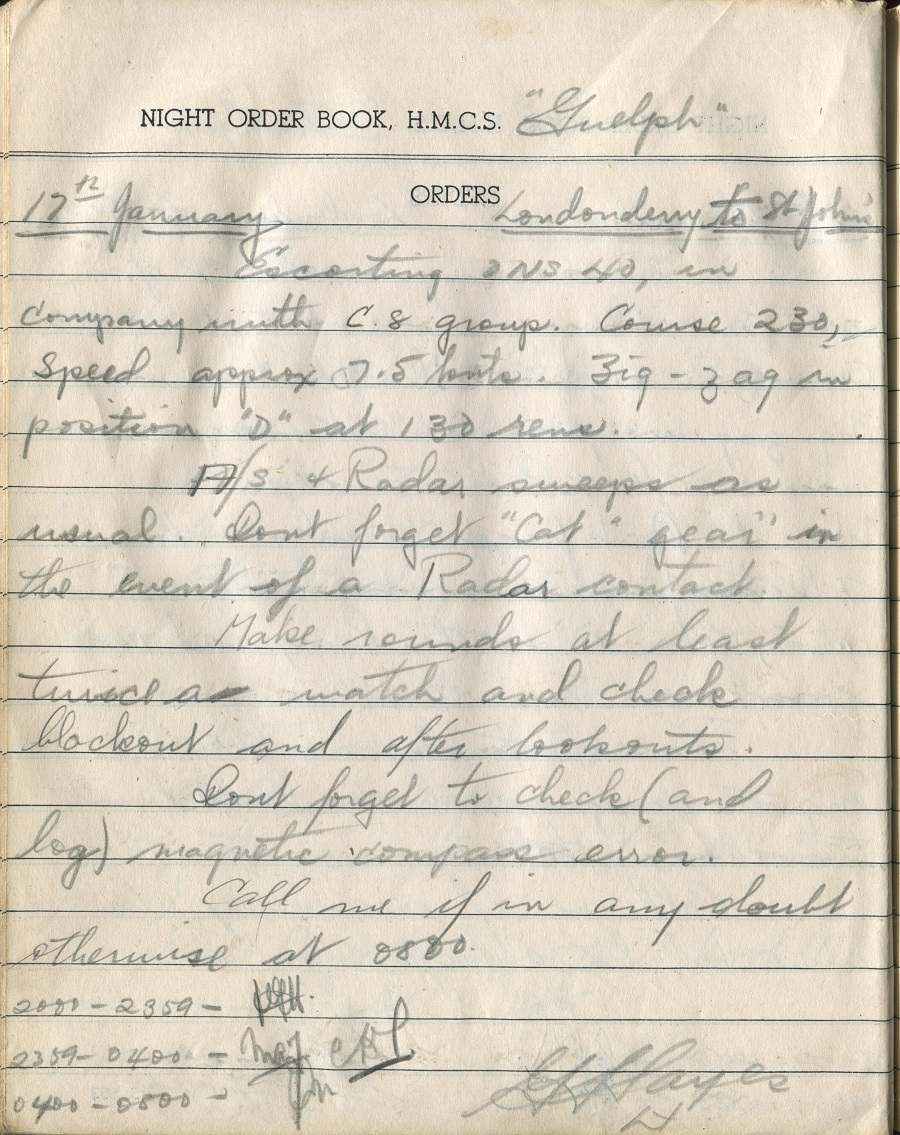 NIGHT ORDER BOOK, H.M.C.S. "Guelph"
ORDERS
17th January Londonderry to St. John's
Escorting ONS 40, in
company with C.8 group. Course 230,
Speed approx 7.5 knots. Zig-zag in
position "D" at 130 revs.
A/S & Radar sweeps as
usual. Dont forget "Cat" gear in
the event of a Radar contact.
Make rounds at least
twice a watch and check
blackout and after lookouts.
Dont forget to check (and
log) magnetic compass error.
Call me if in any doubt
otherwise at 0800.
2000-2359-
2359-0400-
0400-0800-
Hayes
Lt